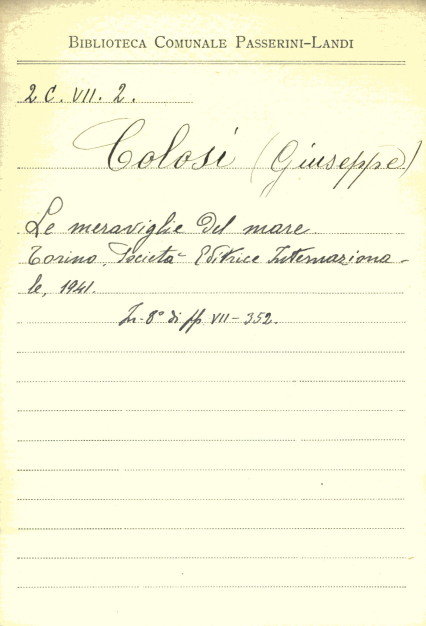 BIBLIOTECA COMUNALE PASSERINI-LANDI
2 C. VII. 2.
Colosi (Giuseppe)
Le meraviglie del mare
Torino, Società Editrice Internaziona-
le, 1941.
In-8° di pp VII-352.